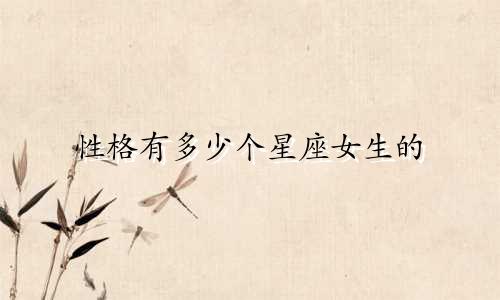 性格有多少个星座女生的